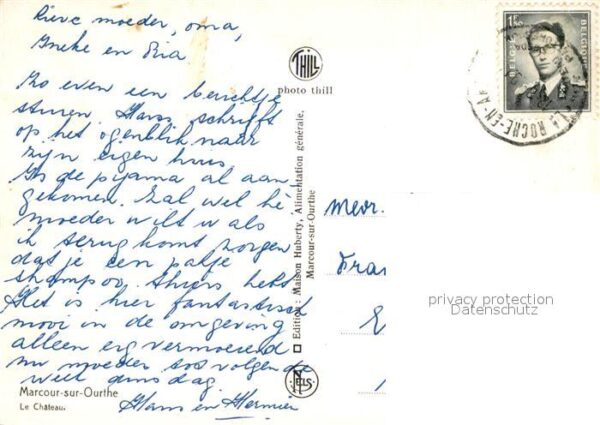 Lieve moeder, oma,
Ineke en Ria
Zo even een berichtje
sturen. Hans schrijft
op het ogenblik naar
zijn eigen huis
Is de pijama al aan-
gekomen. Zal wel hè
moeder wilt u als
ik terug kom zorgen
dat je een patje
shampoo thuis hebt
Het is hier fantastisch
mooi in de omgeving
alleen erg vermoeiend
nu moeder tot volgende
week dinsdag.
Hans en Hermien
Marcour-sur-Ourthe
Le Château.
THILL
photo thill
Edition: Maison Huberty, Alimentation générale,
Marcour-sur-Ourthe
NELS
1F50
BELGIE BELGIQUE
LA ROCHE-EN-A
Mevr.
Fra
E
privacy protection
Datenschutz